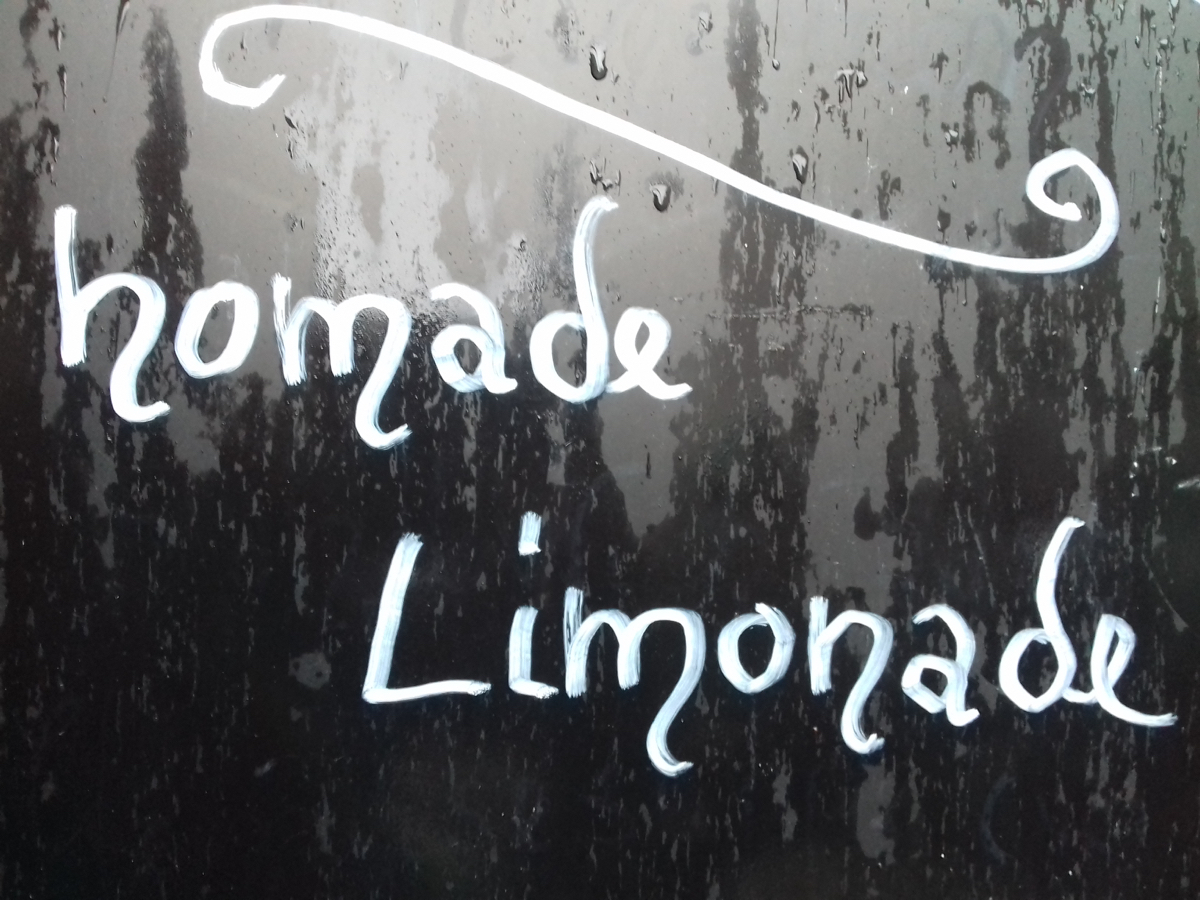 homade
Limonade